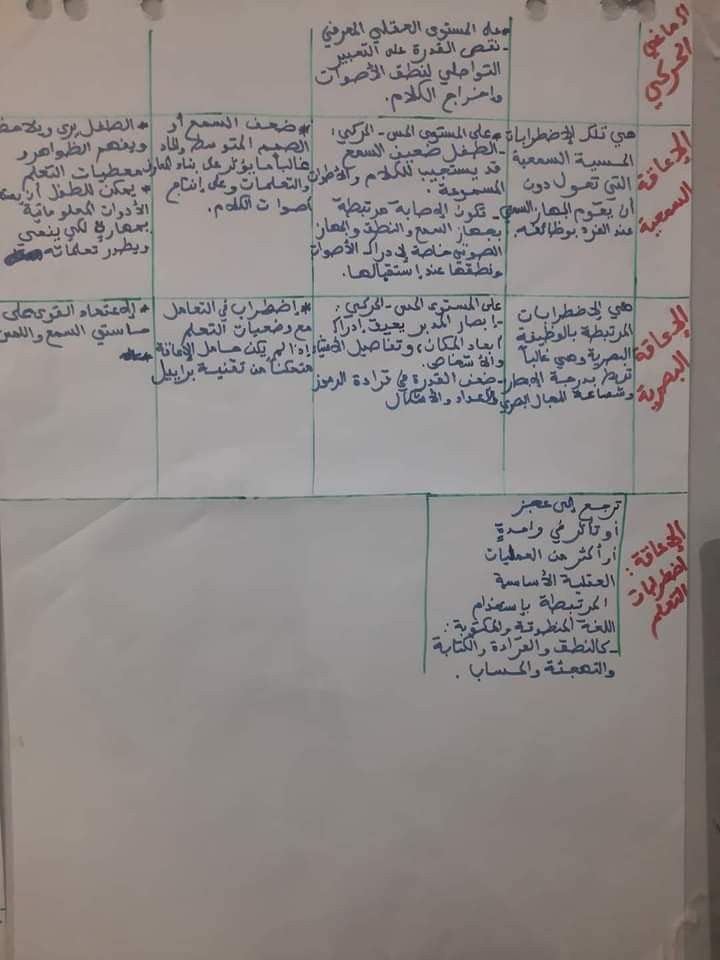 الدماغي
الحركي
* على المستوى العقلي المعرفي
- نقص القدرة على التعبير
التواصلي لنطق الأصوات
وإخراج الكلام.
الإعاقة
السمعية
هي تلك الإضطرابات
الحسية السمعية
التي تحول دون
أن يقوم الجهاز السمعي
عند الفرد بوظائفه.
* على المستوى الحس-الحركي:
- الطفل ضعيف السمع
قد يستجيب للكلام والأصوات
المسموعة.
- تكون الإصابة مرتبطة
بجهاز السمع والنطق والجهاز
الصوتي خاصة في إدراك الأصوات
ونطقها عند إستقبالها.
* ضعف السمع أو
الصمم المتوسط والحاد
غالبا ما يؤثر على بناء المعارف
والتعلمات وعلى إنتاج
أصوات الكلام.
* الطفل يرى ويلاحظ
ويفهم الظواهر و
معطيات التعلم
* يمكن للطفل أن
الأدوات المعلوماتية
بمهارة لكي ينمي
ويطور تعلماته
الإعاقة
البصرية
هي الإضطرابات
المرتبطة بالوظيفة
البصرية وهي غالباً
بدرجة الإبصار
وشساعة المجال البصري
على المستوى الحس-الحركي:
- إبصار المدبر يعيق إدراك
أبعاد المكان، وتفاصيل الأشياء
والأشخاص.
- ضعف القدرة في قراءة الرموز
والأعداد والأشكال
* إضطراب في التعامل
مع وضعيات التعلم
إذا لم يكن حامل الإعاقة
متمكنا من تقنية برابيل
* الإعتماد القوي على
حاستي السمع واللمس
الإعاقة:
إضطرابات
التعلم
ترجع إلى عجز
أو تأثر في واحدةٍ
أو أكثر من العمليات
العقلية الأساسية
المرتبطة بإستخدام
اللغة المنطوقة والمكتوبة:
- كالنطق والقراءة والكتابة
والتهجئة والحساب.